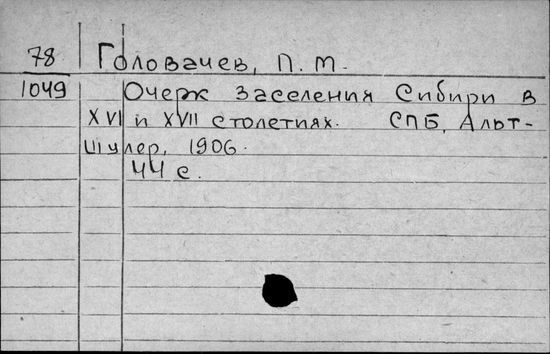 78 Головачев, П. М.
1049 Очерк заселения Сибири в
XVI и XVII столетиях. СПБ, Альт-
шулер, 1906.
44 с.